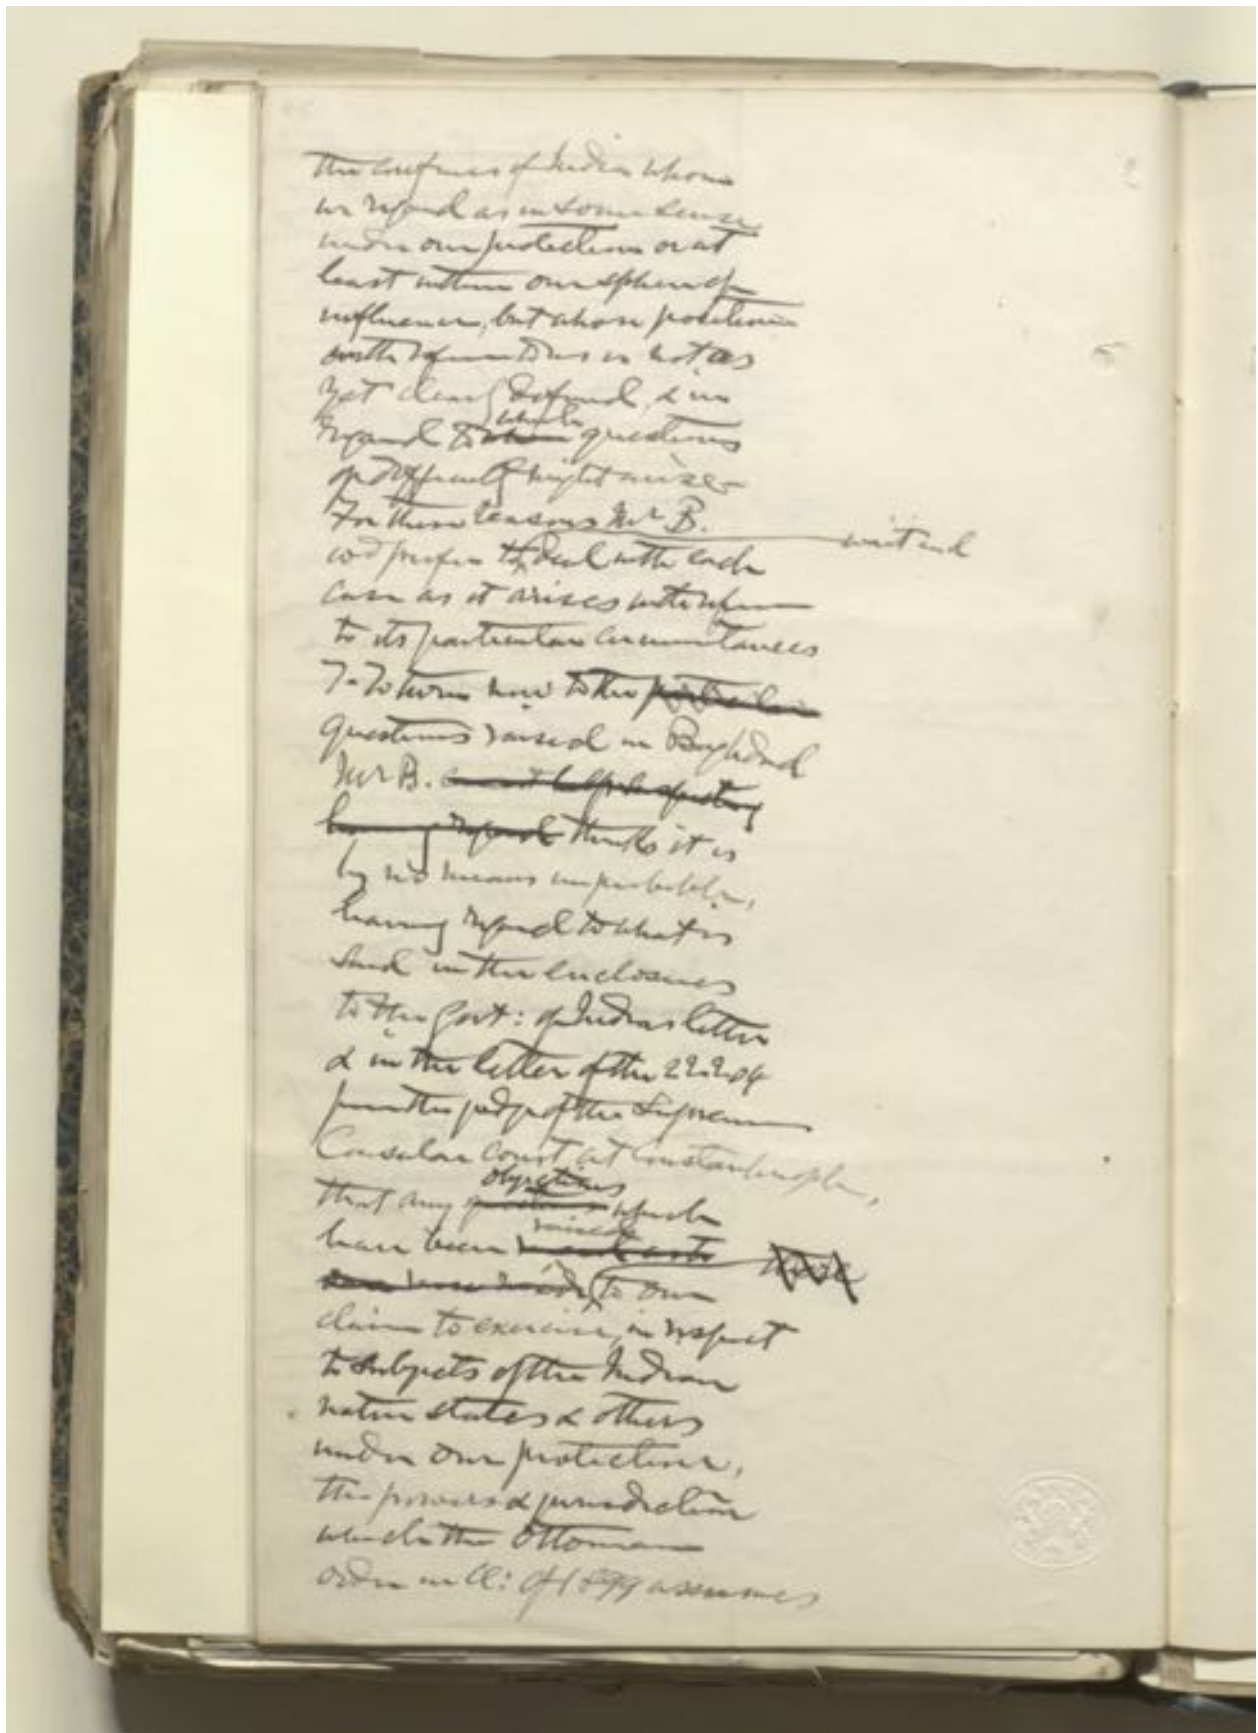 the confines of India whom
we regard as in some sense
under our protection or at
least within our sphere of
influence, but whose position
with reference to us is not as
yet clearly defined, & in
regard to whom which questions
of difficulty might arise -
For these reasons Mr B.
wd prefer to deal with each
case as it arises with reference
to its particular circumstances
7- To turn now to the particular
questions raised in Baghdad
Mr B.
having regard thinks it is
by no means improbable,
having regard to what is
said in the enclosures
to the Govt: of India's letter
& in the letter of the
from the judge of the Supreme
Consular Court at Constantinople,
that any questions objections which
have been raised
to our
claim to exercise, in respect
to subjects of the Indian
native states & others
under our protection,
the powers & jurisdiction
which the Ottoman
Order in Cl: of 1899 assumes